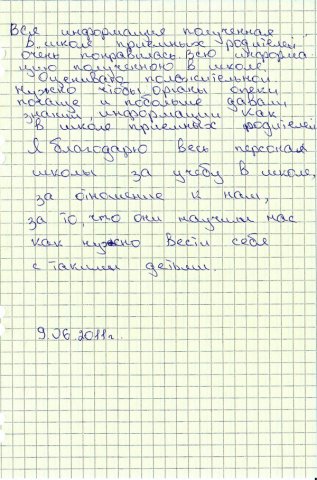 Вся информация полученная
в школе приемных родителей
очень понравилась. Всю информа-
цию полученою в школе
Оцениваю положительной
нужно чтобы органы опеки
почаще и побольше давали
знаний, информации как
в школе приемных родителей
Я благодарю весь персонал
школы за учебу в школе,
за отношение к нам,
за то, что они научили нас
как нужно вести себя
с такими детьми.
9.06.2011г.